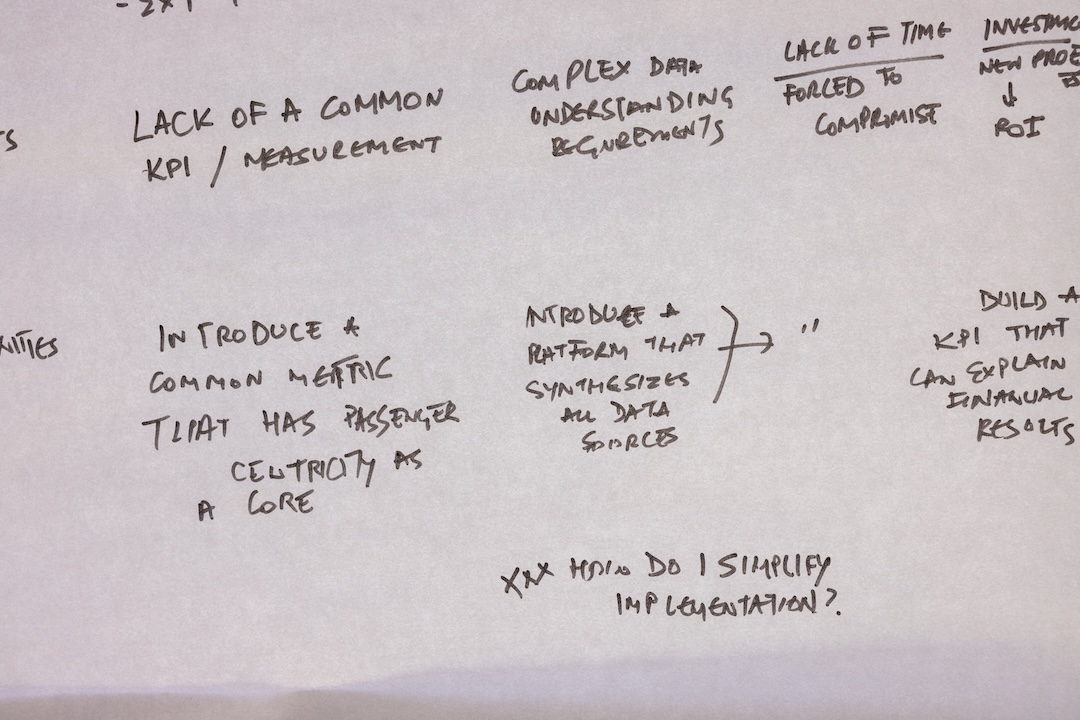 LACK OF A COMMON
KPI / MEASUREMENT
COMPLEX DATA
UNDERSTANDING
REQUIREMENTS
LACK OF TIME
FORCED TO
COMPROMISE
INVESTM
NEW PROC
ES
↓
ROI
TS
NITIES
INTRODUCE A
COMMON METRIC
THAT HAS PASSENGER
CENTRICITY AS
A CORE
INTRODUCE A
PLATFORM THAT
SYNTHESIZES
ALL DATA
SOURCES
→ "
BUILD A
KPI THAT
CAN EXPLAIN
FINANCIAL
RESULTS
XXX HOW DO I SIMPLIFY
IMPLEMENTATION?